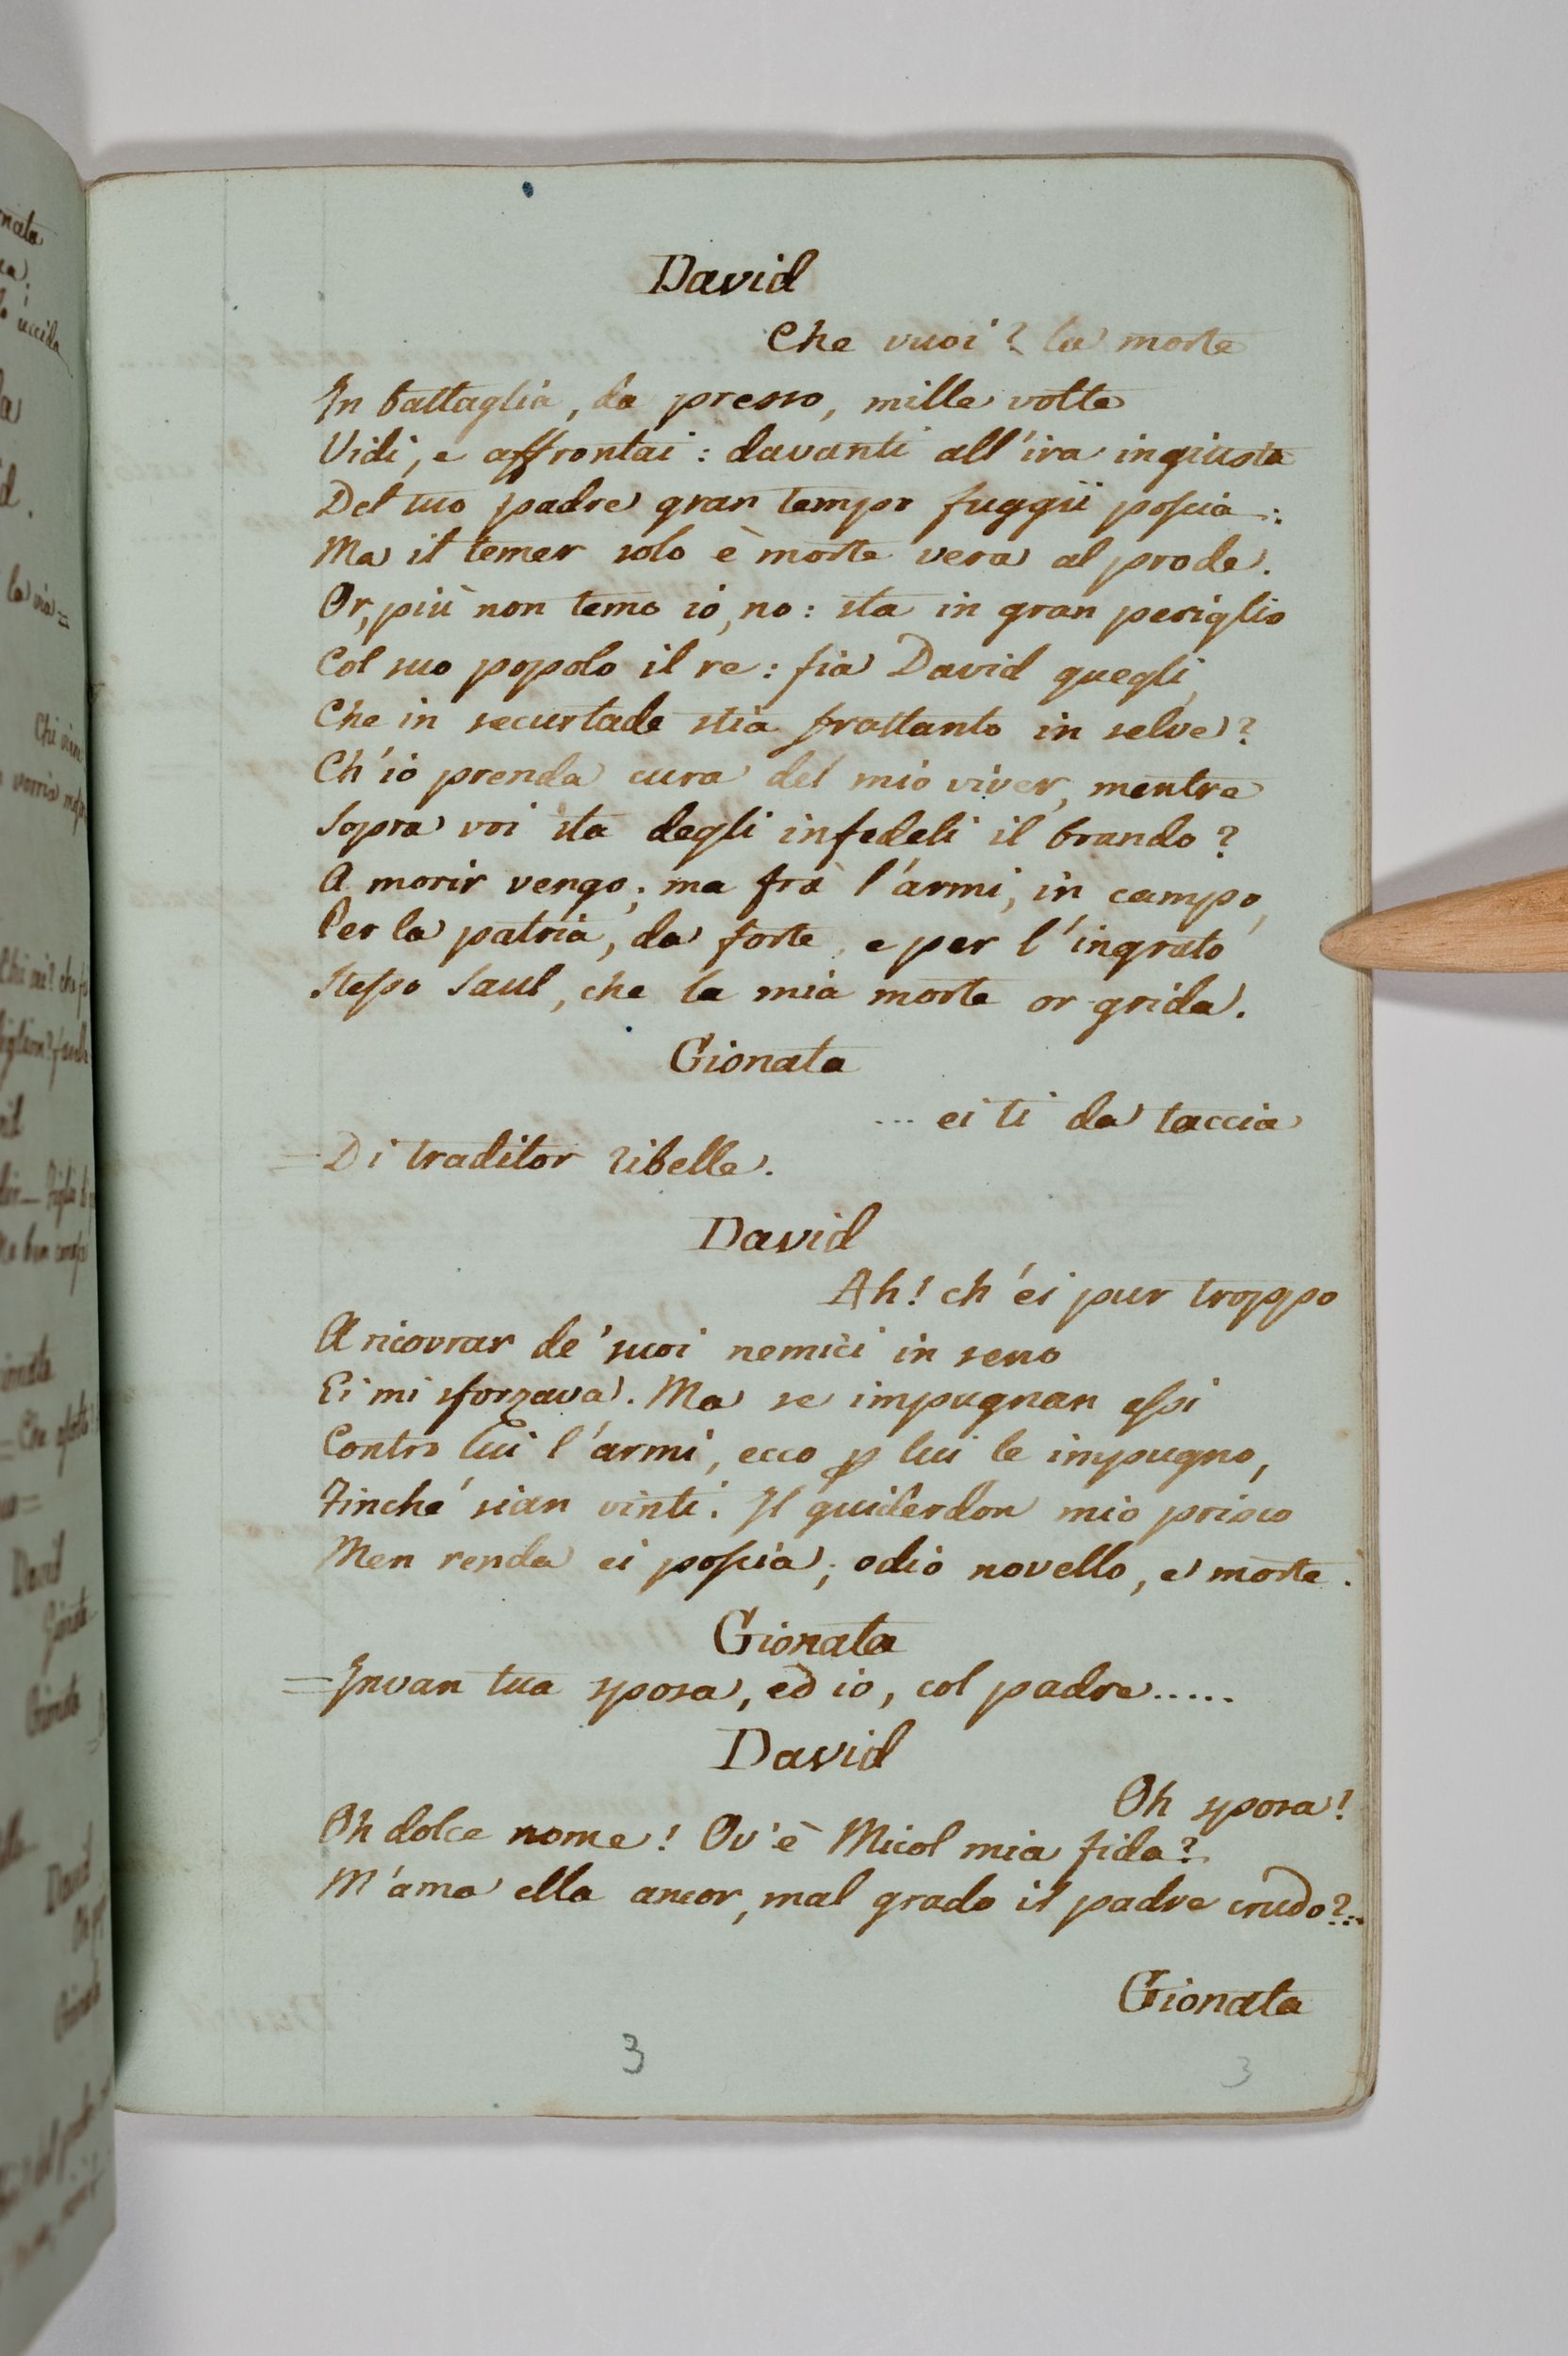 David
Che vuoi? la morte
In battaglia, da presso, mille volte
Vidi, e affrontai: davanti all'ira ingiusta
Del tuo padre gran tempo fuggii poscia:
Ma il temer solo è morte vera al prode.
Or, più non temo io, no: sta in gran periglio
Col suo popolo il re: fia David quegli,
Che in securtade stia frattanto in selve?
Ch'io prenda cura del mio viver, mentre
Sopra voi sta degli infedeli il brando?
A morir vengo; ma frà l'armi, in campo,
Per la patria, da forte, e per l'ingrato
Stesso Saul, che la mia morte or grida.
Gionata
... ei ti da taccia
=Di traditor ribelle.
David
Ah! ch'ei pur troppo
A ricovrar de' suoi nemici in seno
Ei mi sforzava. Ma se impugnan essi
Contro lui l'armi, ecco ꝑ lui le impugno,
Finché sian vinti. Il guiderdon mio prisco
Men renda ei poscia; odio novello, e morte.
Gionata
=Invan tua sposa, ed io, col padre.....
David
Oh sposa!
Oh dolce nome! Ov'è Micol mia fida?
M'ama ella ancor, mal grado il padre crudo?..
Gionata
3
3
nata
uccida
la via=
David
Gionata
David